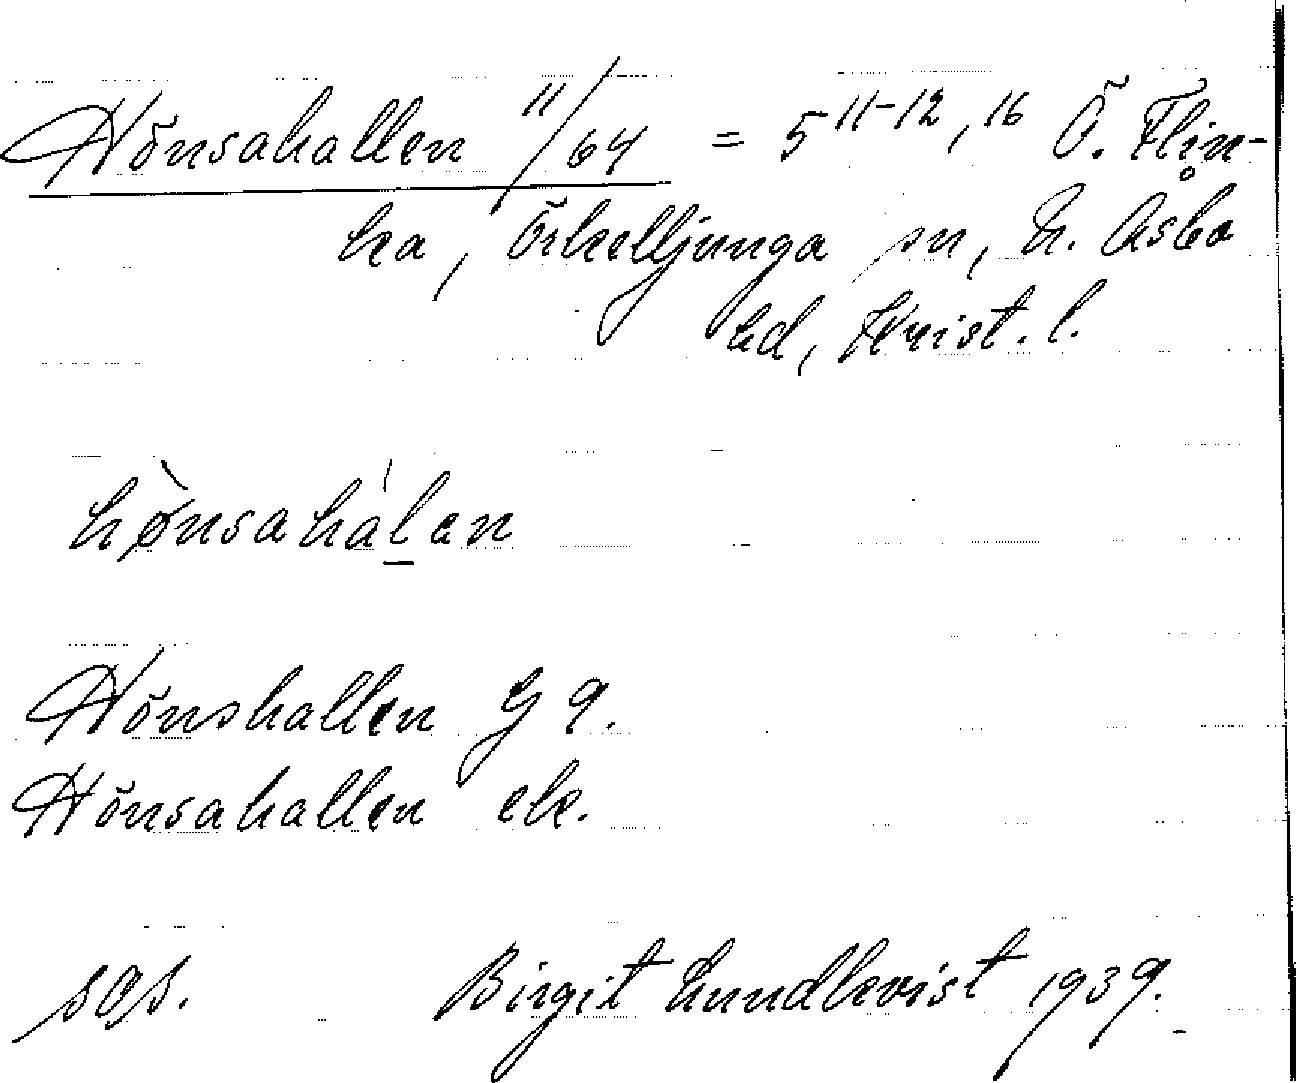 Hönsahallen 11/64 = 5 11-12, 16 Ö. Flin-
ka, Örkelljunga sn, N. Åsbo
hd, Krist. l.
hø̀nsahálan
Hönshallen G 9.
Hönsahallen ek.
sgs. Birgit Lundkvist 1939.